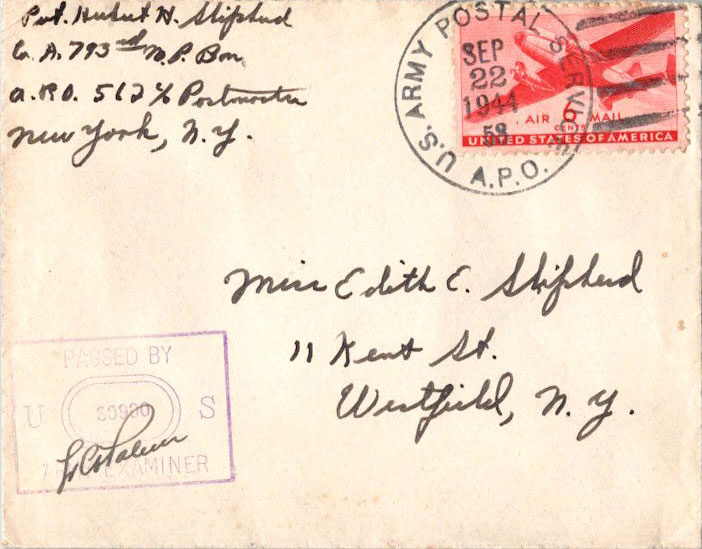 Pvt. Hubert H. Shepherd
Co. A. 793rd M.P. Bon
A.P.O. 562 % Postmaster
New York, N.Y.
U.S. ARMY POSTAL SERVICE
SEP
22
1944
58
A.P.O.
AIR MAIL
6
CENTS
UNITED STATES OF AMERICA
Miss Edith E. Shepherd
11 Kent St.
Westfield, N.Y.
PASSED BY
U 30990 S
EXAMINER